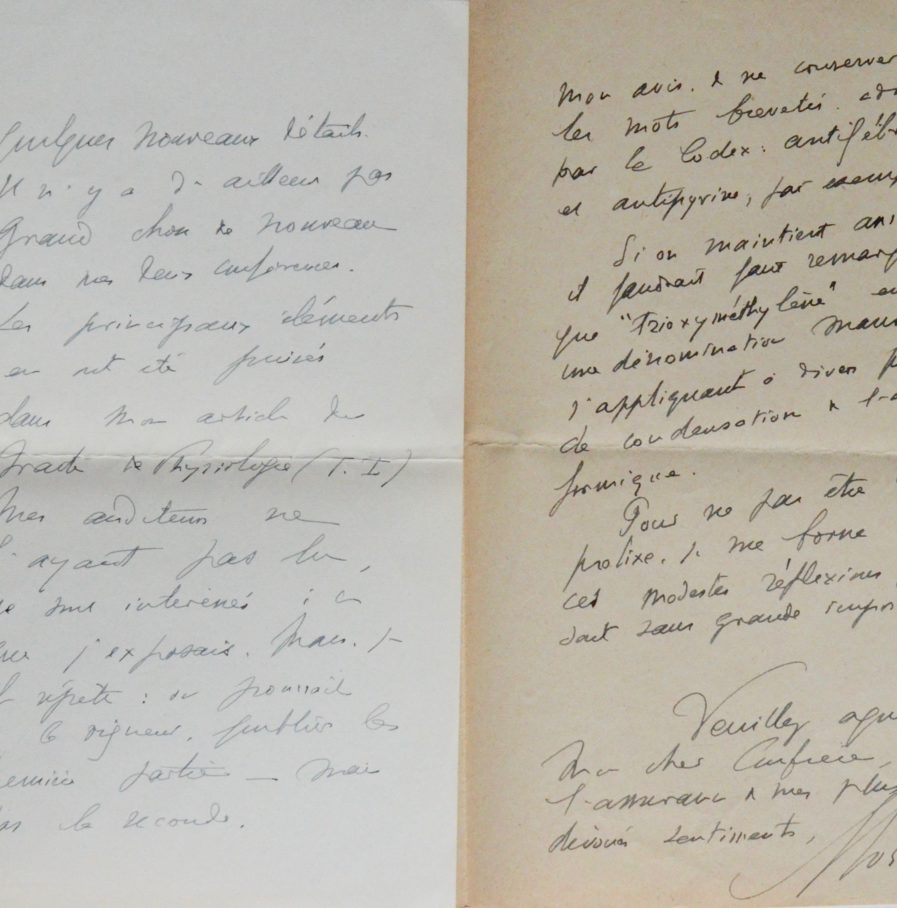 Quelques nouveaux détails.
Il n'y a d'ailleurs pas
Grand chose de nouveau
dans mes deux conférences.
Les principaux éléments
en ont été puisés
dans mon article du
Traité de Physiologie (T. I)
Mes auditeurs ne
l'ayant pas lu,
se sont intéressés à ce
que j'exposais. Mais, je
le répète : on pourrait
à la rigueur, publier la
première partie — mais
pas la seconde.
mon avis. & ne conserver
les mots brevetés
par le Codex : antiféb
et antipyrine, par exemp
Si on maintient
il faudrait faire remarq
que "Trioxyméthylène" e
une dénomination mauv
s'appliquant à divers p
de condensation de l'a
formique.
Pour ne pas être
prolixe, je me borne
ces modestes réflexions
sont sans grande impor
Veuillez agré
Mon cher Confrère,
l'assurance de mes plus
dévoués sentiments,